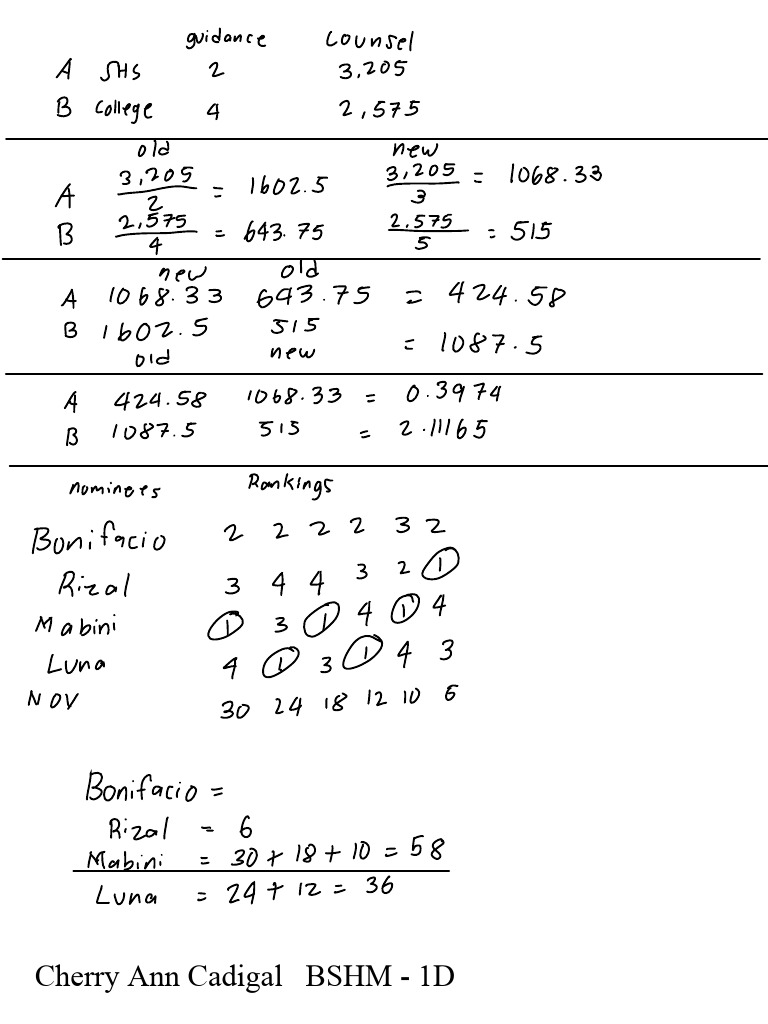 guidance counsel
A SHS 2 3,205
B College 4 2,575
old new
A 3,205/2 = 1602.5 3,205/3 = 1068.33
B 2,575/4 = 643.75 2,575/5 = 515
new old
A 1068.33 643.75 = 424.58
B 1602.5 515 = 1087.5
old new
A 424.58 1068.33 = 0.3974
B 1087.5 515 = 2.11165
nominees Rankings
Bonifacio 2 2 2 2 3 2
Rizal 3 4 4 3 2 1
Mabini 1 3 1 4 1 4
Luna 4 1 3 1 4 3
NOV 30 24 18 12 10 6
Bonifacio =
Rizal = 6
Mabini = 30 + 18 + 10 = 58
Luna = 24 + 12 = 36
Cherry Ann Cadigal BSHM - 1D